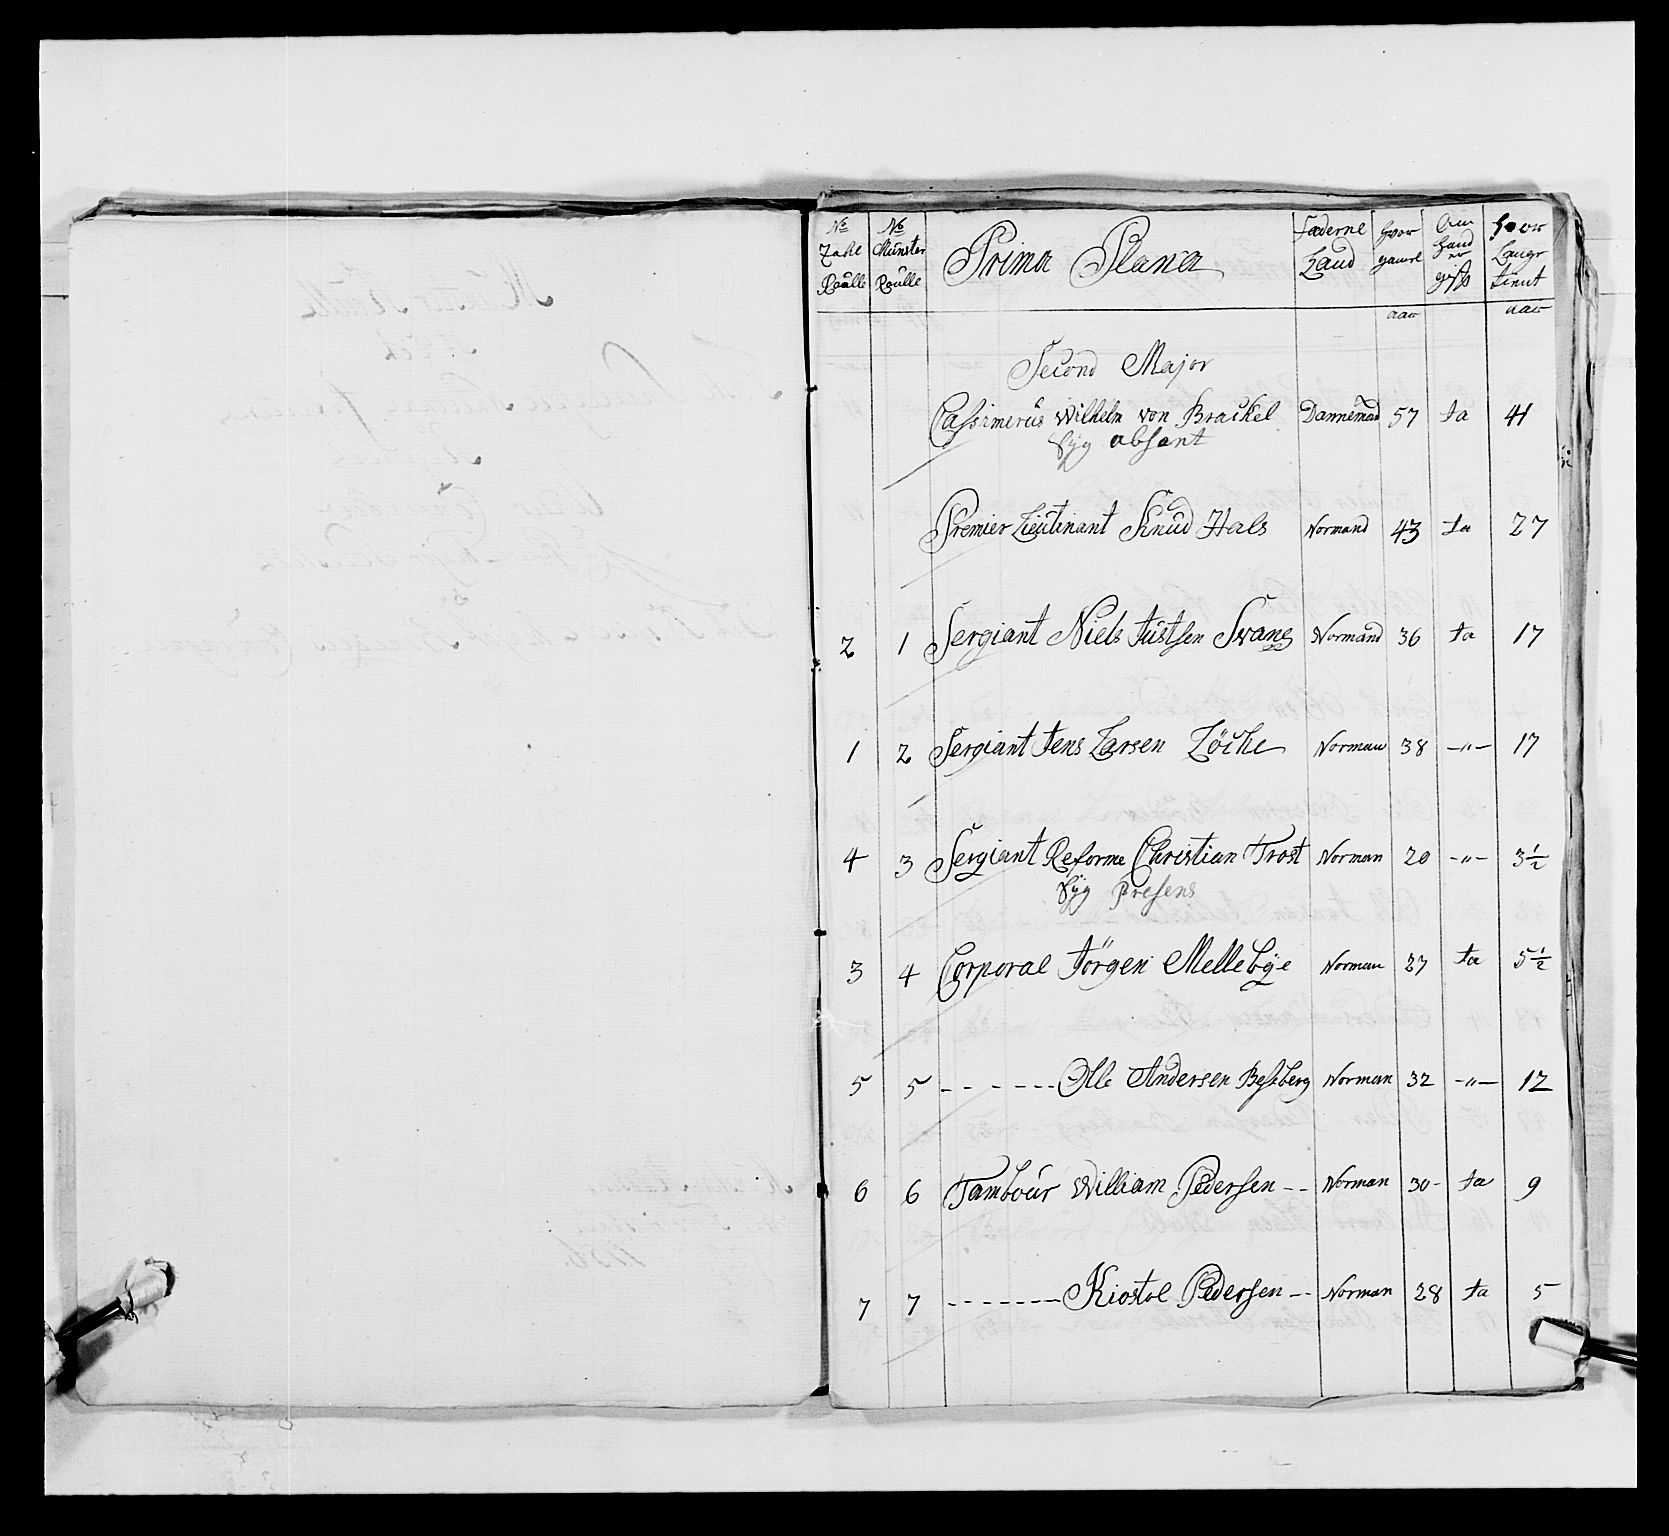 No Zahl Roulle | No Münster Roulle | Prima Plana | Faderne Land | hvor gamel | Om hand er gift | hvor Lange tient
aar | aar
Second Major
Cassimerus Wilhelm von Brackel | Dannemark | 57 | Ja | 41
Syg absent
Premier Lieutinant Knud Hals | Normand | 43 | Ja | 27
2 | 1 | Sergiant Niels Justsen Svane | Normand | 36 | Ja | 17
1 | 2 | Sergiant Jens Larsen Löche | Norman | 38 | -"- | 17
4 | 3 | Sergiant Reforme Christian Trost | Norman | 20 | -"- | 3½
Syg Presens
3 | 4 | Corporal Jörgen Mellebye | Norman | 27 | Ja | 5½
5 | 5 | ------ Olle Andersen Bessberg | Norman | 32 | -"- | 12
6 | 6 | Tambour William Pedersen -- | Norman | 30 - | Ja | 9
7 | 7 | ------- Kiostol Pedersen -- | Norman | 28 | Ja | 5